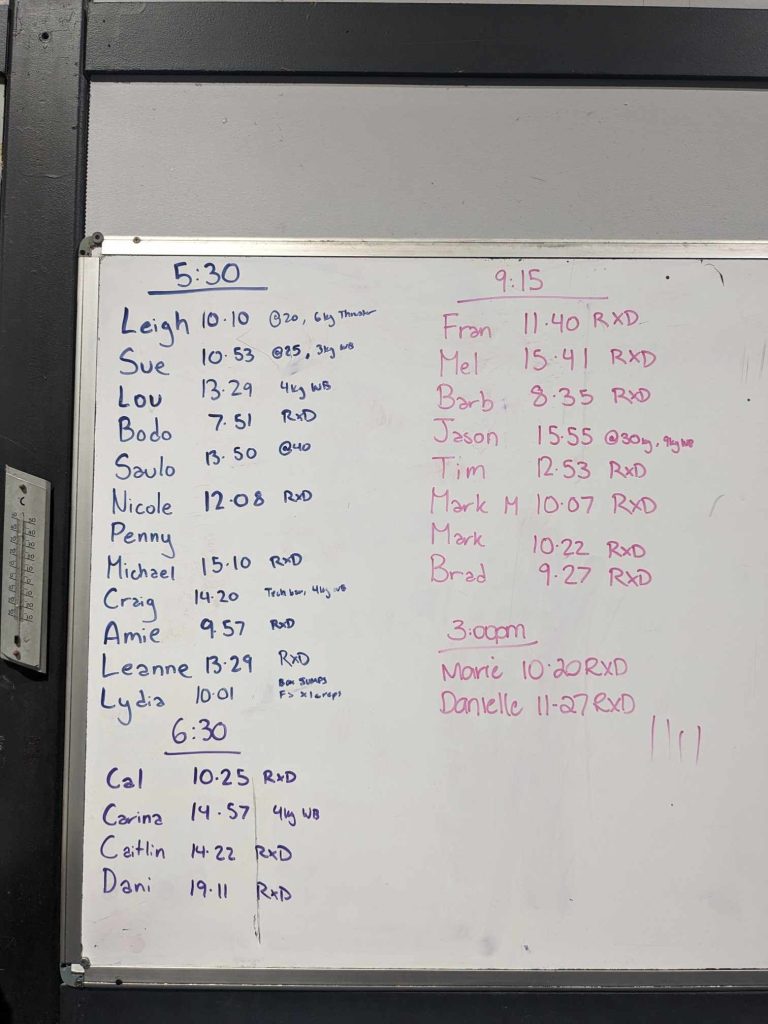 5:30
Leigh 10.10 @20, 6kg Thruster
Sue 10.53 @25, 3kg WB
Lou 13.29 4kg WB
Bodo 7.51 RXD
Saulo 13.50 @40
Nicole 12.08 RXD
Penny
Michael 15.10 RXD
Craig 14.20 Tech bar, 4kg WB
Amie 9.57 RXD
Leanne 13.29 RXD
Lydia 10.01 Box Jumps
6:30
Cal 10.25 RXD
Carina 14.57 4kg WB
Caitlin 14.22 RXD
Dani 19.11 RXD
9:15
Fran 11.40 RXD
Mel 15.41 RXD
Barb 8.35 RXD
Jason 15.55 @30kg, 9kg WB
Tim 12.53 RXD
Mark M 10.07 RXD
Mark 10.22 RXD
Brad 9.27 RXD
3:00pm
Marie 10.20 RXD
Danielle 11-27 RXD